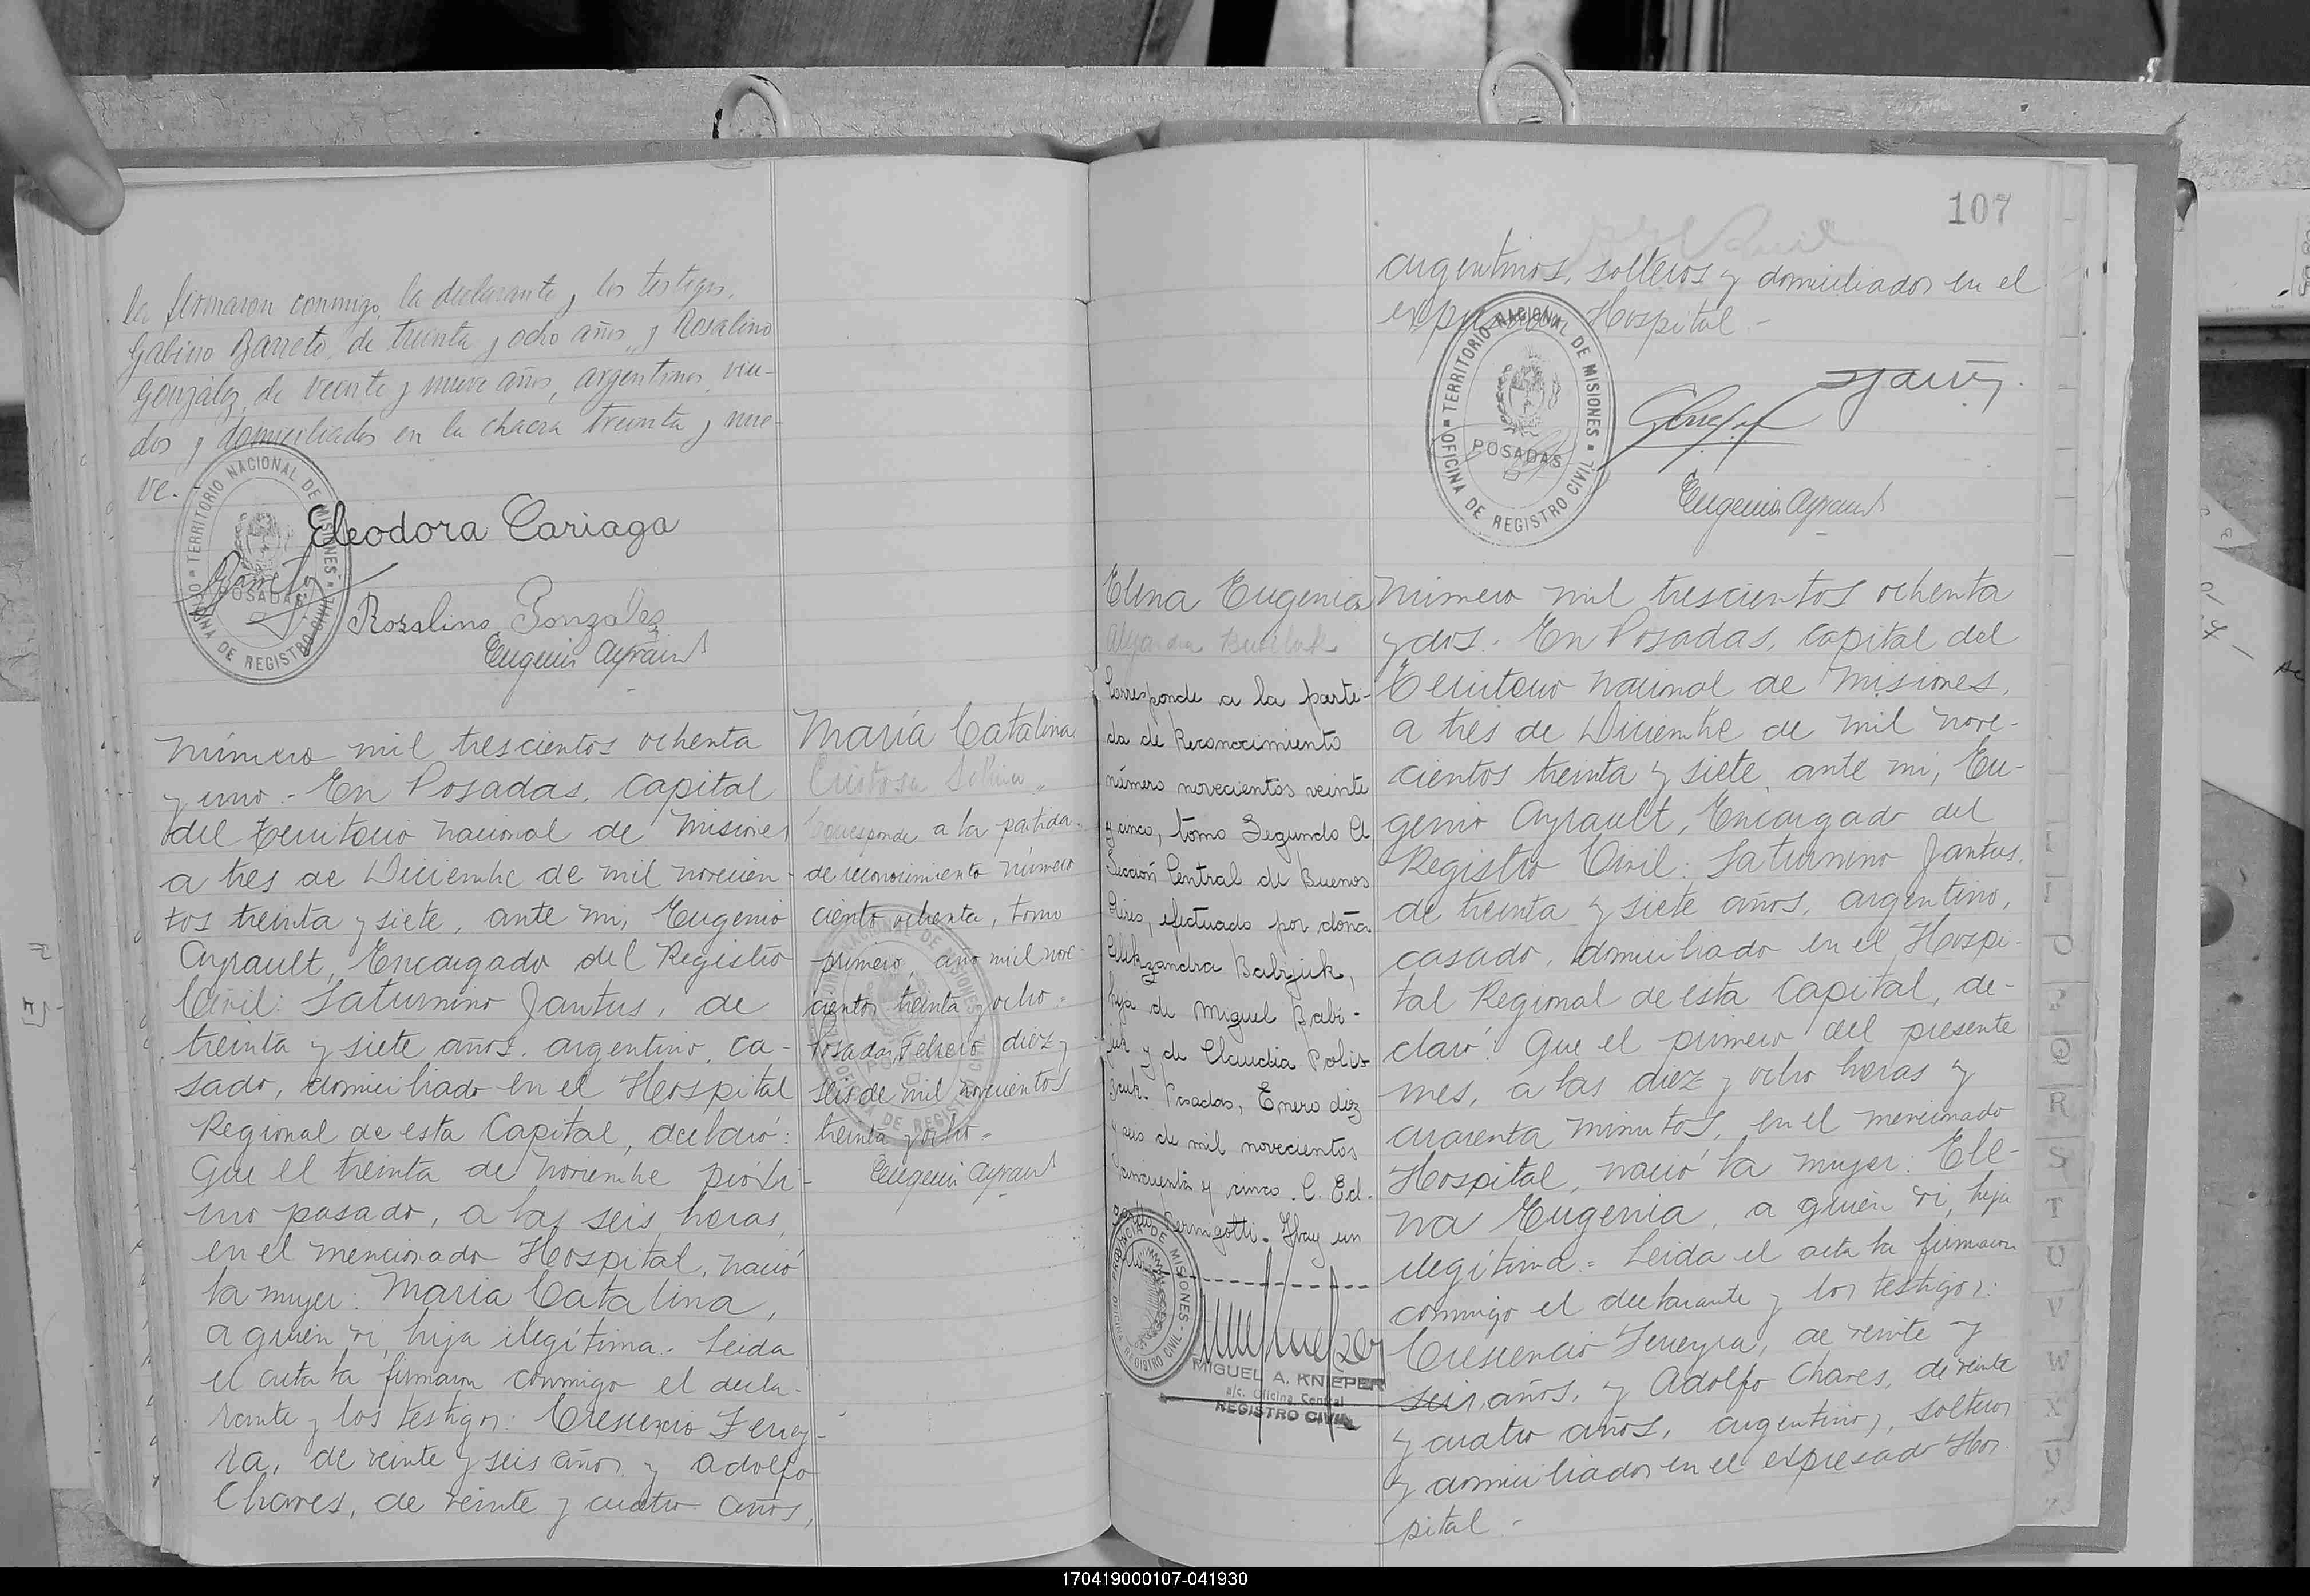 la firmaron conmigo, la declarante y los testigos,
Gabino Barreto, de treinta y ocho años, y Rosalino
González, de veinte y nueve años, argentinos, viu-
dos y domiciliados en la chacra treinta y nue-
ve.-
TERRITORIO NACIONAL DE MISIONES
OFICINA DE REGISTRO CIVIL
POSADAS
Eleodora Cariaga
Barreto
Rosalino Gonzalez
Eugenio Ayrault
Número mil trescientos ochenta
y uno.- En Posadas, Capital
del Territorio Nacional de Misiones,
a tres de Diciembre de mil novecien-
tos treinta y siete, ante mi, Eugenio
Ayrault, Encargado del Registro
Civil: Saturnino Jantus, de
treinta y siete años, argentino, ca-
sado, domiciliado en el Hospital
Regional de esta Capital, declaró:
Que el treinta de Noviembre próxi-
mo pasado, a las seis horas,
en el mencionado Hospital, nació
la mujer: María Catalina,
a quien vi, hija ilegítima.- Leida
el acta la firmaron conmigo el decla-
rante y los testigos: Crescencio Ferrey-
ra, de veinte y seis años y Adolfo
Chares, de veinte y cuatro años,
María Catalina
Corresponde a la partida
de reconocimiento número
ciento ochenta, tomo
primero, año mil nove-
cientos treinta y ocho.-
Posadas, Febrero diez y
seis de mil novecientos
treinta y ocho.-
Eugenio Ayrault
TERRITORIO NACIONAL DE MISIONES
OFICINA DE REGISTRO CIVIL
POSADAS
107
argentinos, solteros y domiciliados en el
expresado Hospital.-
TERRITORIO NACIONAL DE MISIONES
OFICINA DE REGISTRO CIVIL
POSADAS
Eugenio Ayrault
Elena Eugenia
Corresponde a la parti-
da de Reconocimiento
número novecientos veinte
y cinco, tomo Segundo A
Sección Central de Buenos
Aires, efectuado por doña
Alekzandra Babijuk,
hija de Miguel Babi-
juk y de Claudia
Posadas, Enero diez
y seis de mil novecientos
cincuenta y cinco. C. Ed.
Hay un
PROVINCIA DE MISIONES
REGISTRO CIVIL
MIGUEL A. KNIEPER
a/c. Oficina Central
REGISTRO CIVIL
Número mil trescientos ochenta
y dos.- En Posadas, Capital del
Territorio Nacional de Misiones,
a tres de Diciembre de mil nove-
cientos treinta y siete, ante mi, Eu-
genio Ayrault, Encargado del
Registro Civil: Saturnino Jantus,
de treinta y siete años, argentino,
casado, domiciliado en el Hospi-
tal Regional de esta Capital, de-
claró: Que el primero del presente
mes, a las diez y ocho horas y
cuarenta minutos, en el mencionado
Hospital, nació la mujer: Ele-
na Eugenia, a quien vi, hija
ilegítima.- Leida el acta la firmaron
conmigo el declarante y los testigos:
Crescencio Ferreyra, de veinte y
seis años, y Adolfo Chares, de veinte
y cuatro años, argentinos, solteros
y domiciliados en el expresado Hos-
pital.-
Q
R
S
T
U
V
W
X
Y
170419000107-041930